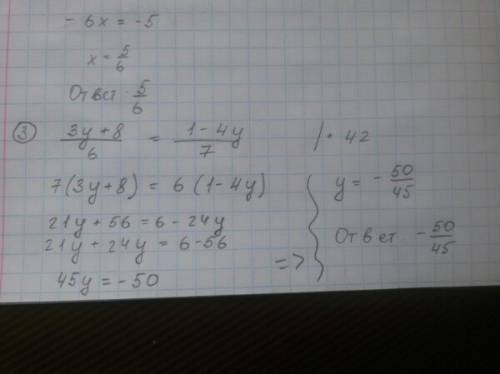 - 6x = -5
x = 5/6
Ответ: 5/6
③ (3y + 8)/6 = (1 - 4y)/7 | · 42
7(3y + 8) = 6 (1 - 4y)
21y + 56 = 6 - 24y
21y + 24y = 6 - 56
45y = -50
=> y = - 50/45
Ответ - 50/45